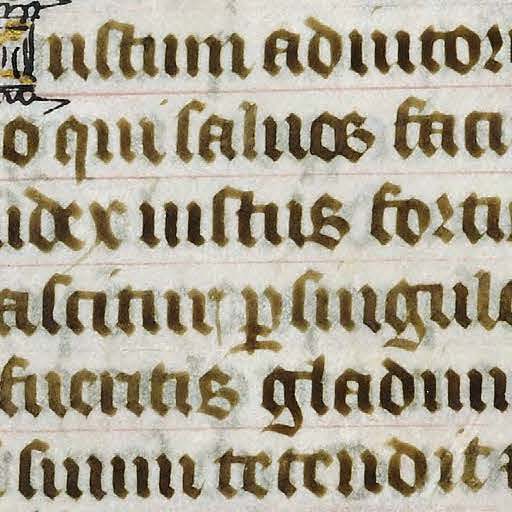 Iustum adiutor
o qui saluos faci
udex iustus forti
ascitur ꝑ singulo
fueritis gladium
suum tetendit